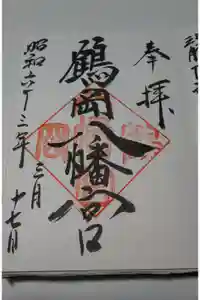 奉拝
鶴岡八幡宮
昭和六十三年三月
十七日